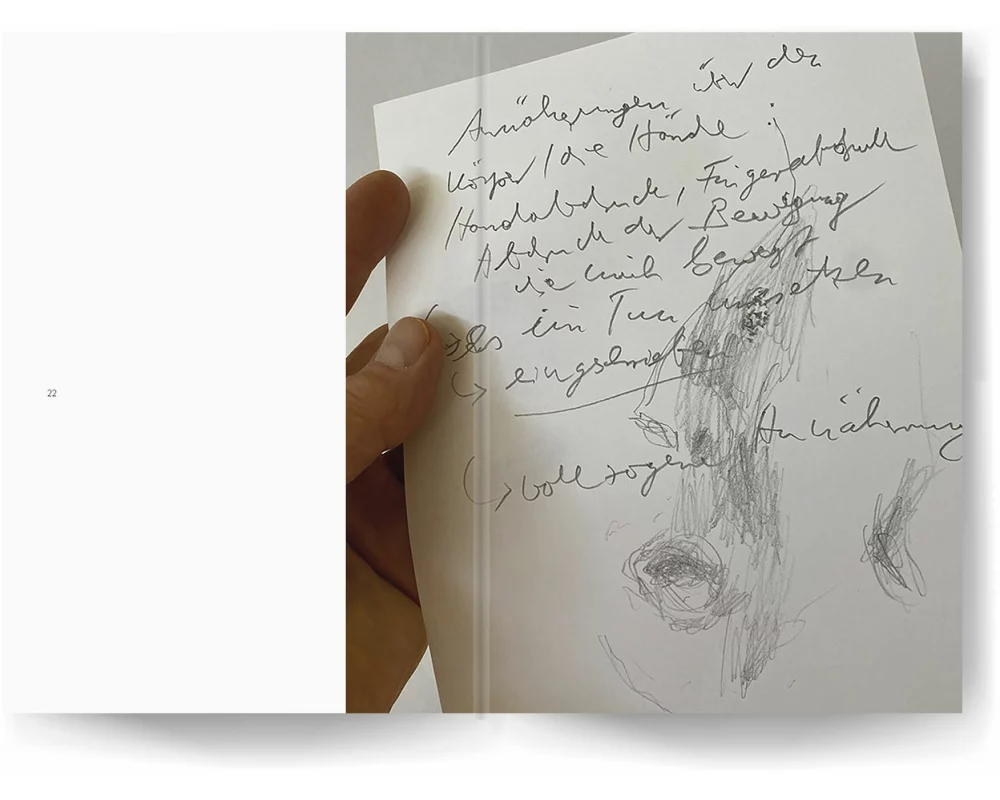 22
Annäherungen über den
Körper / die Hände :
Handabdruck, Fingerabdruck
Abdruck der Bewegung
die mich bewegt
ins ein Tun umsetzen
↳ eingeschrieben
Annäherung
↳ vollzogene